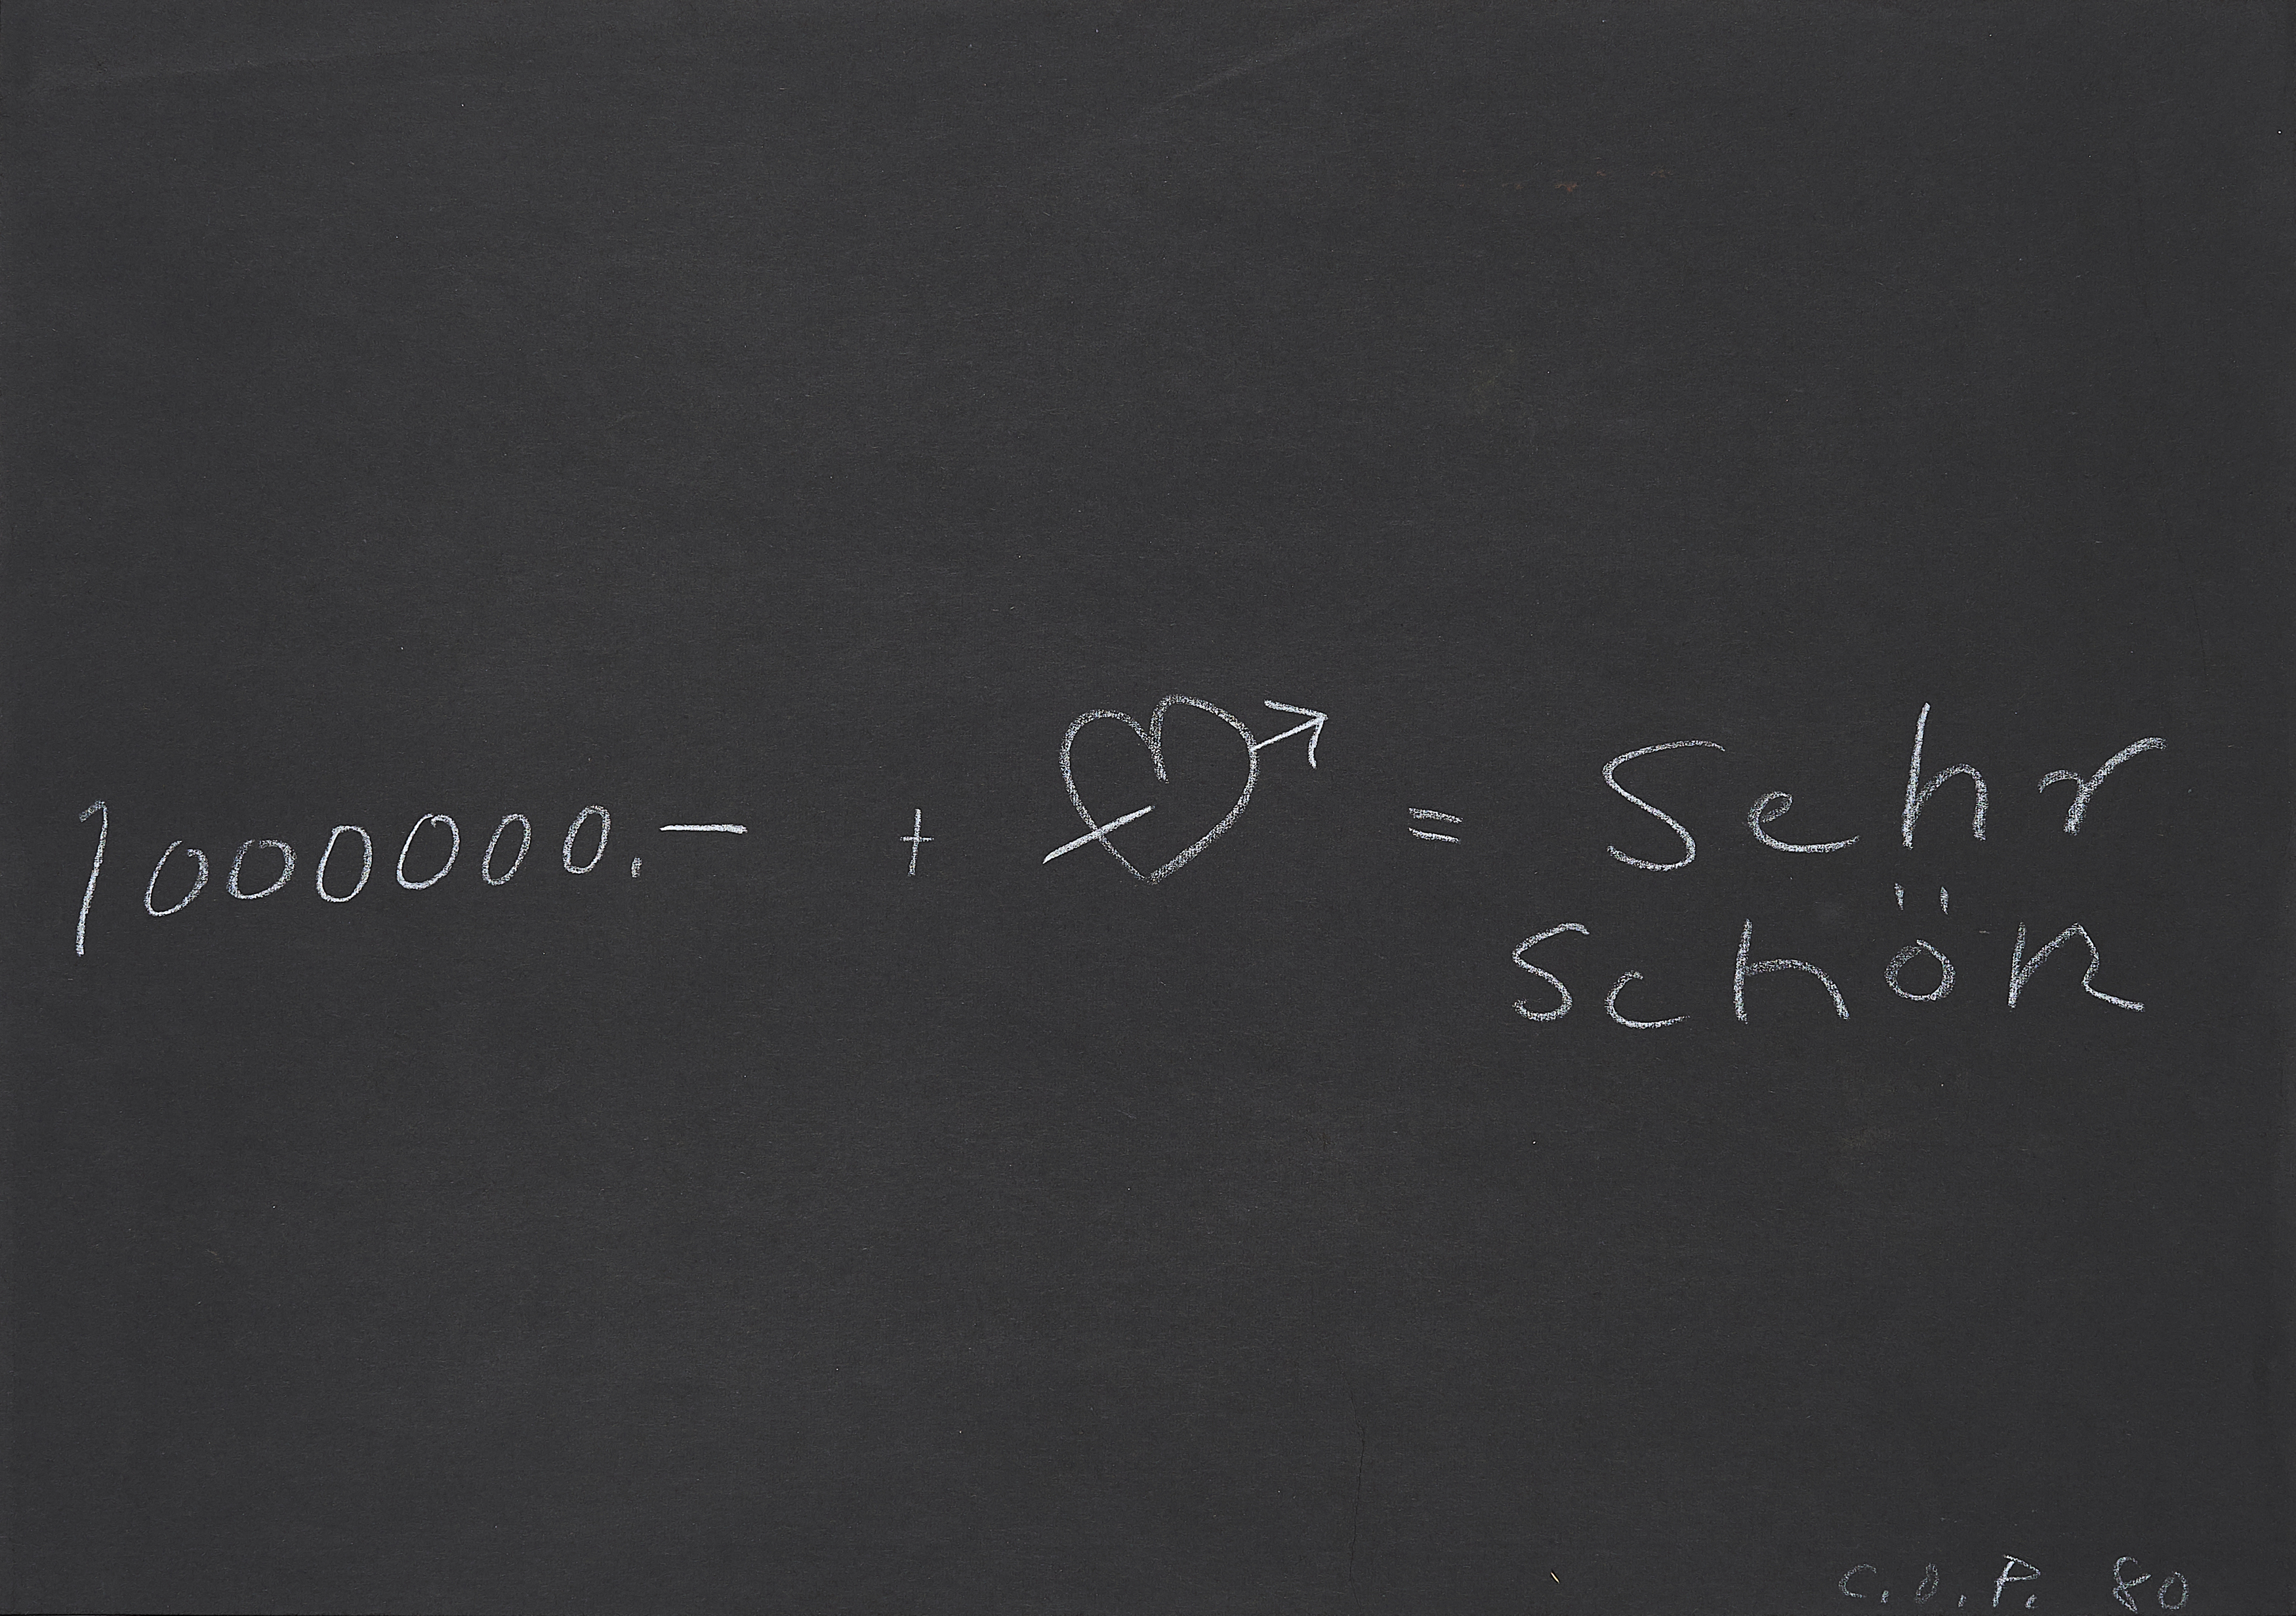 1000000.– + = Sehr
schön
C.O.P. 80